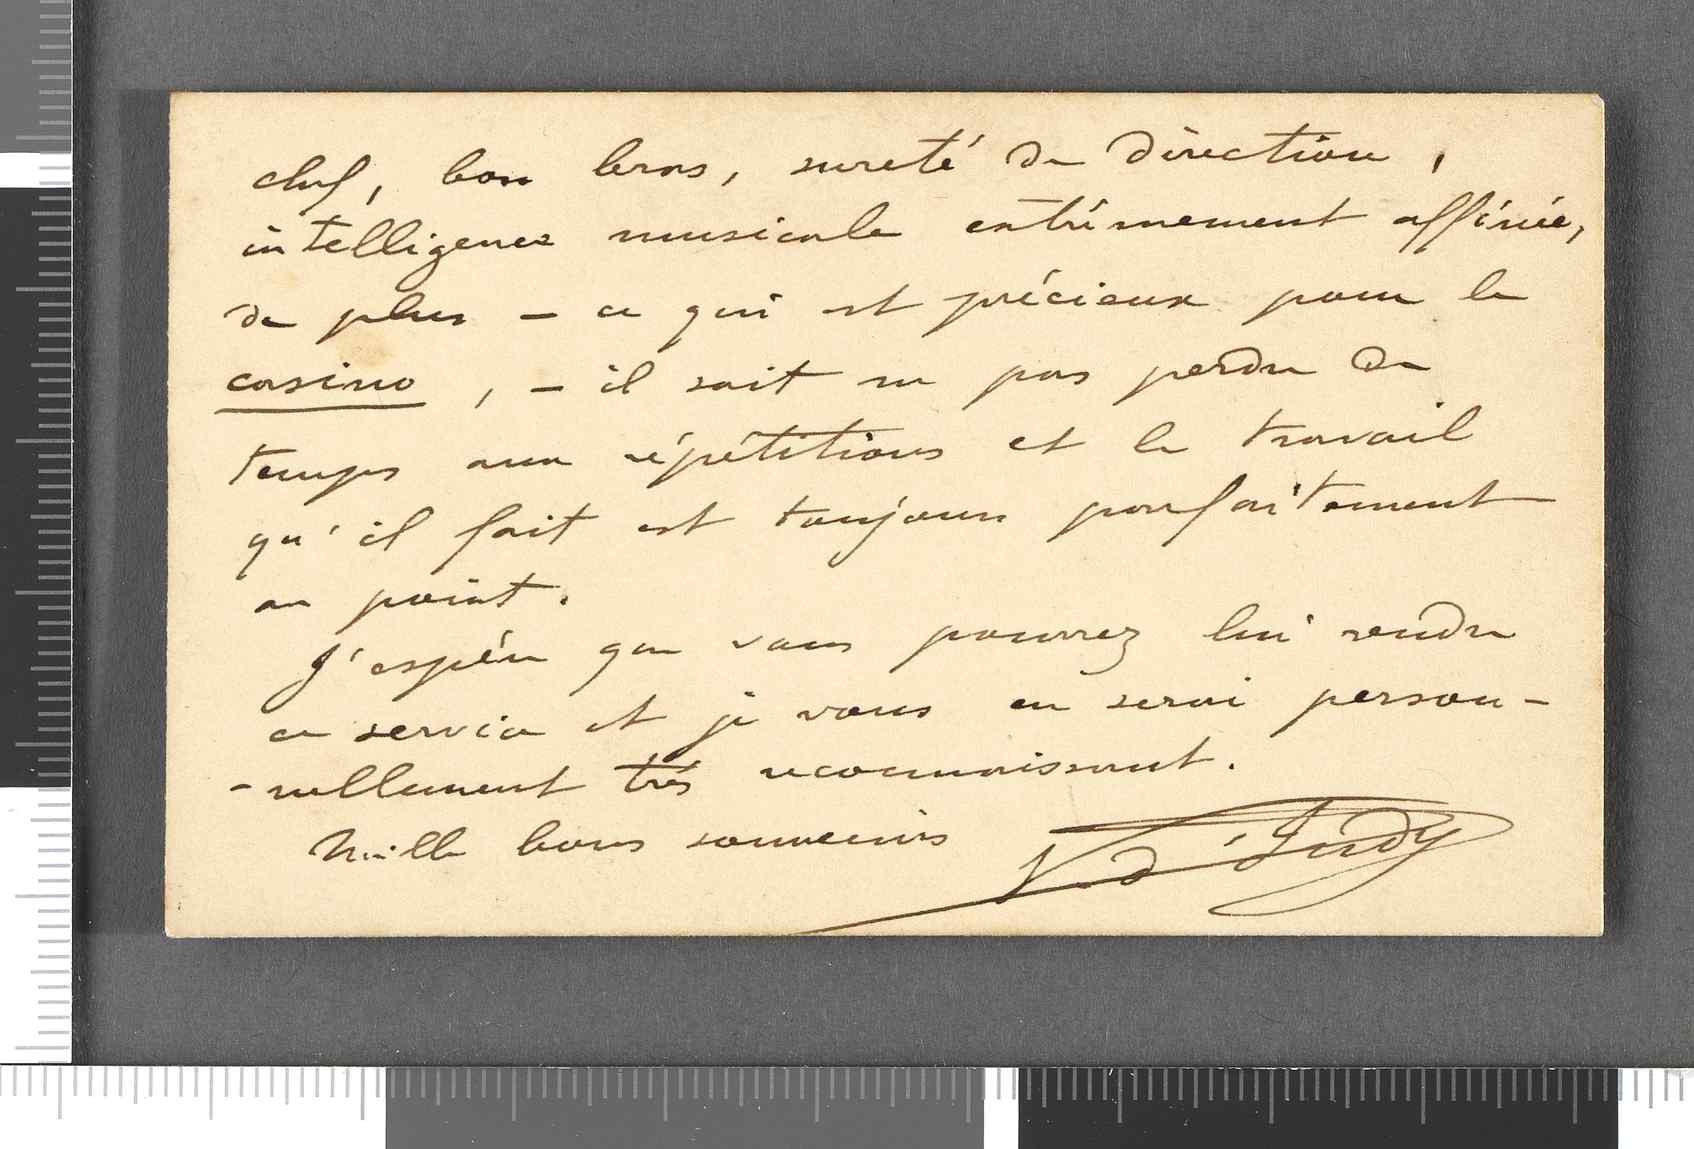 chef, bon bras, sureté de direction,
intelligence musicale extrêmement affinée,
de plus – ce qui est précieux pour le
casino, – il sait ne pas perdre de
temps aux répétitions et le travail
qu'il fait est toujours parfaitement
au point.
J'espère que vous pourrez lui rendre
ce service et je vous en serai person-
-nellement très reconnaissant.
Mille bons souvenirs
V. d'Indy